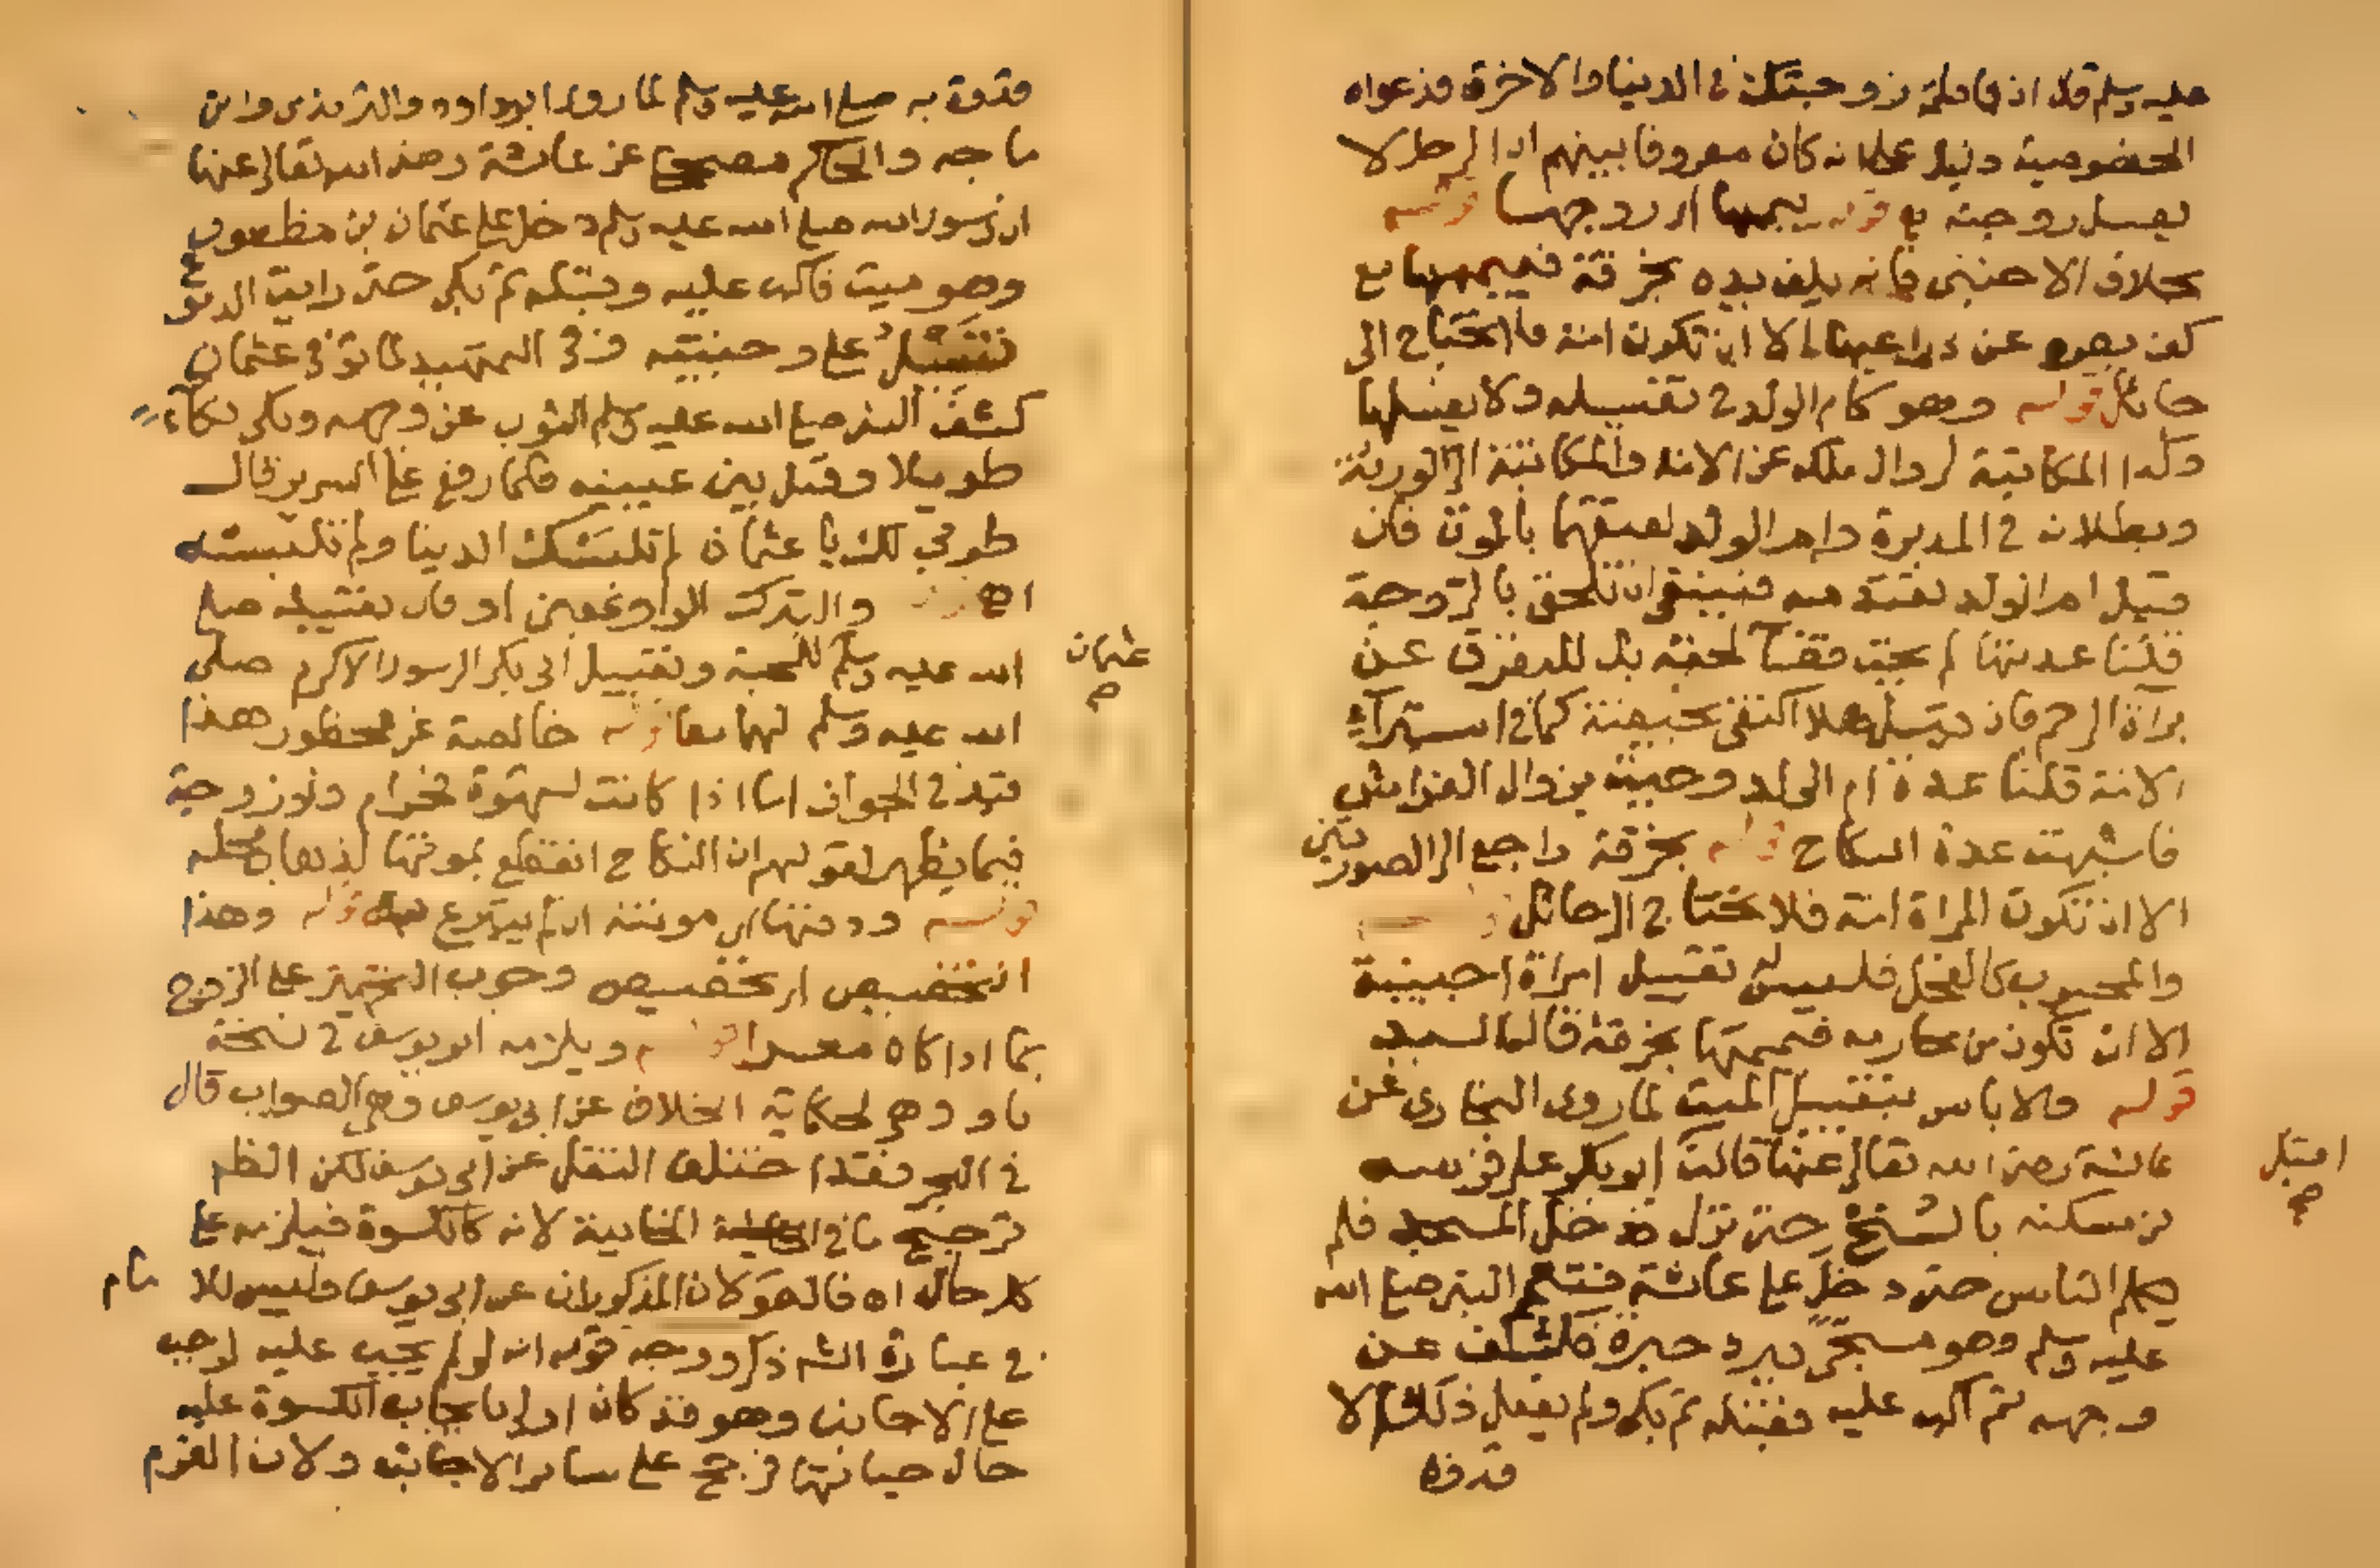 عليه وسلم قال ان فاطمة زوجتك في الدنيا والاخرة فدعواه
الخصوصية دليل على انه كان معروفا بينهم ان الرجل لا
يغسل زوجته قوله ييممها اي زوجها قوله
بخلاف الاجنبي فانه يلف يده بخرقة فييممها مع
كف بصره عن ذراعيها الا ان تكون امة فلا يحتاج الى
حائل قوله وهو كام الولد في تغسيله ولا يغسلها
وكذا المكاتبة لزوال ملكه عن الامة والمكاتبة الى الورثة
وبطلانه في المدبرة وام الولد لعتقهما بالموت فان
قيل ام الولد تعتد منه فينبغي ان تلحق بالزوجة
قلنا عدتها لم تجب قضاء لحقه بل للتعرف عن
براة الرحم فان قيل هلا اكتفى بحيضة كما في استبراء
الامة قلنا عدة ام الولد وجبت بزوال الفراش
فاشبهت عدة النكاح قوله بخرقة راجع الى الصورتين
الا ان تكون المراة امة فلا تحتاج الى حائل
والمجبوب كالفحل فليس له تغسيل امراة اجنبية
الا ان تكون من محارمه فييممها بخرقة قاله السيد
قوله ولا باس بتقبيل الميت لما روى البخاري عن
عائشة رضي الله تعالى عنها قالت ابو بكر على فرسه
من مسكنه بالسنح حتى نزل فدخل المسجد فلم
يكلم الناس حتى دخل على عائشة فتيمم النبي صلى الله
عليه وسلم وهو مسجى ببرد حبرة فكشف عن
وجهه ثم اكب عليه فقبله ثم بكى ولم يفعل ذلك الا
قدوة
اقبل
صح
قدوة به صلى الله عليه وسلم لما روى ابو داود والترمذي وابن
ماجه والحاكم مصححا عن عائشة رضي الله تعالى عنها
ان رسول الله صلى الله عليه وسلم دخل على عثمان بن مظعون
وهو ميت فاكب عليه وقبله ثم بكى حتى رايت الدموع
تسيل على وجنتيه وفي التمهيد لما توفي عثمان
كشف النبي صلى الله عليه وسلم الثوب عن وجهه وبكى بكاء
طويلا وقبل بين عينيه فلما رفع على السرير قال
طوبى لك يا عثمان لم تلبسك الدنيا ولم تلبسها
اه والتبرك الواو بمعنى او فان تقبيله صلى
الله عليه وسلم للمحبة وتقبيل ابي بكر الرسول الاكرم صلى
الله عليه وسلم لهما معا قوله خالصة عن محظور هذا
قيد في الجواز اما اذا كانت لشهوة فحرام ولو زوجة
فيما يظهر لقولهم ان النكاح انقطع بموتها لذهاب محله
قوله ودفنها اي مؤنته ان لم يتبرع قوله وهذا
التخصيص اي تخصيص وجوب التجهيز على الزوج
بما اذا كان معسرا قوله ويلزمه ابو يوسف في نسخة
باو وهي لحكاية الخلاف عن ابي يوسف وهي الصواب قال
في البحر فقد اختلف النقل عن ابي يوسف لكن الظاهر
ترجيح ما في الخانية لانه كالكسوة فيلزمه على
كل حال اه فالقولان المذكوران عن ابي يوسف وليس للامام
في عبارة الشرح ذكر ووجه قوله انه لو لم يجب عليه لوجب
على الاجانب وهو قد كان اولى بايجاب الكسوة عليه
حال حياتها فرجح على سائر الاجانب ولان الغرم
عثمان
صح